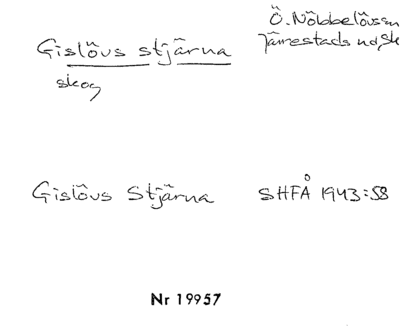 Gislövs stjärna
skog
Ö. Nöbbelövssn
Järrestads hd, Sk
Gislövs Stjärna SHFÅ 1943:58
Nr 19957